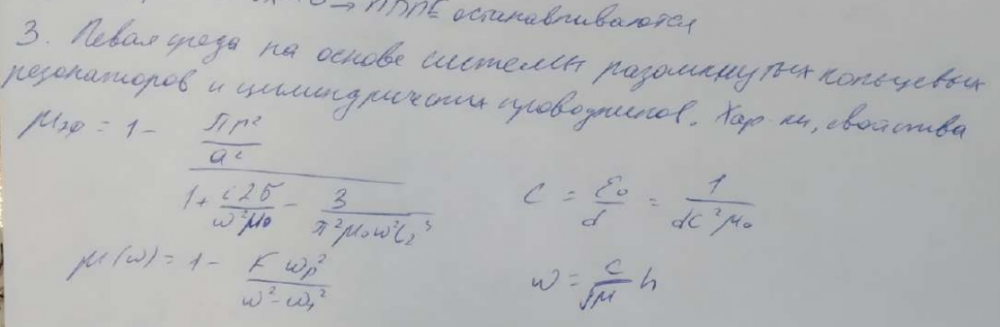 → ПДПЕ останавливаются
3. Левая среда на основе системы разомкнутых кольцевых
резонаторов и цилиндрических проводников. Хар-ки, свойства
μэф = 1 - (πr²/a²) / (1 + (i2σ/ω²μ₀) - (3/π²μ₀ω²C₂³))
C = ε₀/d = 1/(dc²μ₀)
μ(ω) = 1 - (F ωp²)/(ω² - ω₁²)
ω = (c/√μ) h